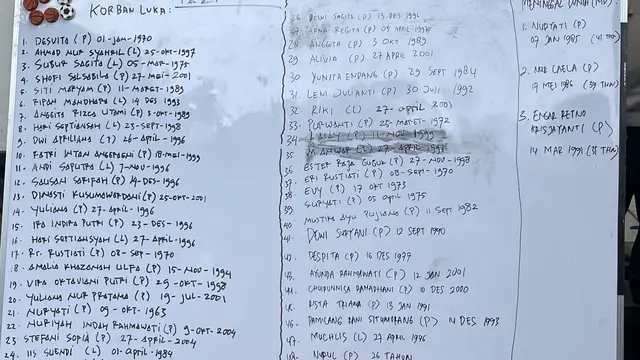 KORBAN LUKA:
1. DESVITA (P) 01-JAN-1970
2. AHMAD NUR SYAHRIL (L) 25-OKT-1997
3. SUBUR SAGITA (L) 05-MAR-1975
4. SHOFI SALSABILA (P) 27-MEI-2001
5. SITI MARYAM (P) 11-MARET-1989
6. RIFAN MANDHARA (L) 14 DES 1993
7. ANGGITA RIZCA UTAMI (P) 3-OKT-1989
8. HARI SEPTIANSAH (L) 23-SEPT-1998
9. DWI APRILIANA (P) 26-APRIL-1996
10. FATRI INTAN ANGGRAENI (P) 18-MEI-1999
11. ANDI SAPUTRA (L) 7-NOV-1996
12. SAUSAN SARIFAH (P) 14-DES-1996
13. DINASTI KUSUMAWARDANI (P) 25-OKT-2001
14. YULIANA (P) 27-APRIL-1996
15. IRA INDIRA PUTRI (P) 23-DES-1996
16. HARI SEPTIANSYAH (L) 27-APRIL-1996
17. RR. RUSTIATI (P) 08-SEP-1970
18. AMALIA KHAZANAH ULFA (P) 15-NOV-1994
19. VIRA OKTAVIANI PUTRI (P) 29-OKT-1998
20. YULIANA NUR PRATAMA (P) 19-JUL-2001
21. NURYATI (P) 09-OKT-1963
22. NURIYAH INDAH RAHMAWATI (P) 9-OKT-2004
23. STEFANI SOFIA (P) 27-APRIL-2004
24. IIS SUENDI (L) 01-APRIL-1984
26. DEWI SAGITA (P) 13 DES 1996
REGITA (P) 05 APRIL
28. ANGGITA (P) 3 OKT 1989
29. ALIVIA (P) 27 APRIL 2001
30. YUNITA ENDANG (P) 29 SEPT 1984
31. LENI JULIANTI (P) 30 JULI 1992
32. RIKI (L) 27-APRIL 2001
33. PURWANTI (P) 25-MARET-1972
34. LAILY (P) 11-NOV-1999
35. ANWAR 27-APRIL 1998
36. ESTER RAJA GUGUK (P) 27-NOV-1998
37. ERI RUSTIATI (P) 08-SEPT-1970
38. EVY (P) 17 OKT 1973
39. SURYATI (P) 05 APRIL 1975
40. MUSTIKA AYU PUJIANA (P) 11 SEPT 1982
41. DEWI SURYANI (P) 12 SEPT 1990
42. DESPITA (P) 16 DES 1977
43. AYUNDA RAHMANATI (P) 12 JAN 2001
44. CHOIRUNNISA RAMADHANI (P) 10 DES 2000
45. RISTA TRIANA (P) 13 JAN 1991
46. PAMICANG RANI SITUMORANG (P) 14 DES 1993
47. MUCHLIS (L) 27 APRIL 1996
48. NURUL (P) 26 TAHUN
MENINGGAL DUNIA (MD)
1. NURYATI (P)
07 JAN 1985 (41 THN)
2. NUR LAELA (P)
17 MEI 1986 (39 THN)
3. ENGAR RETNO
KRISJAYANTI (P)
14 MAR 1991 (35 THN)